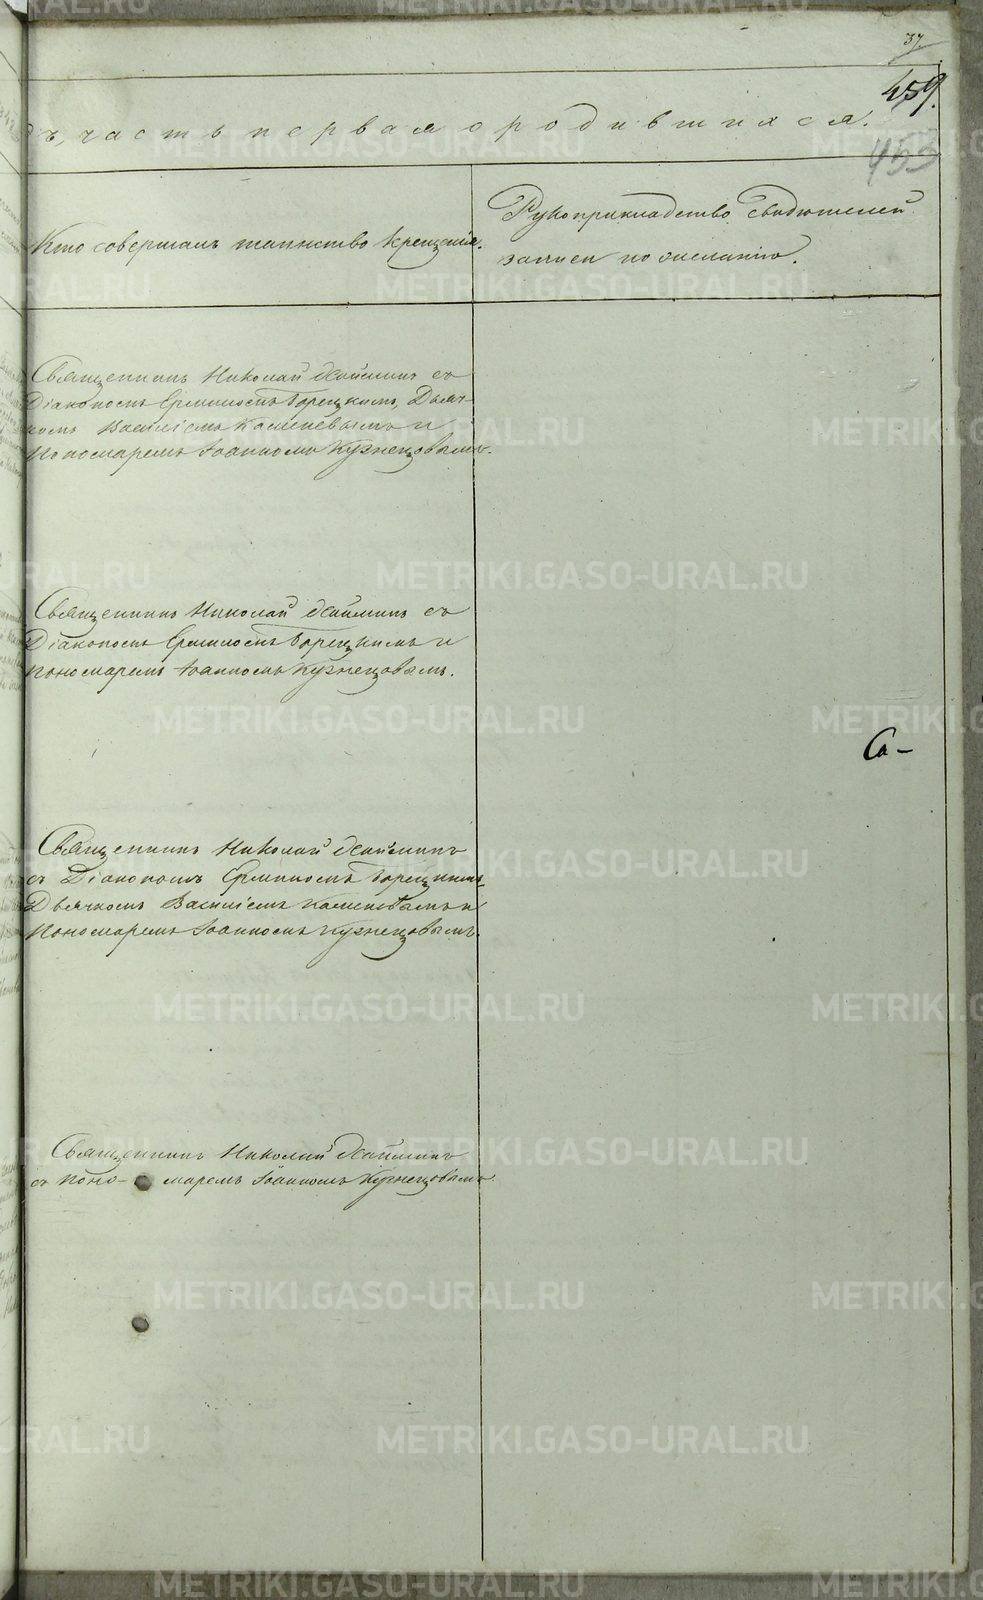 37.
459.
453
ъ, часть первая о родившихся.
Кто совершалъ таинство крещенія.
Рукоприкладство свидѣтелей
записи по желанію.
Священникъ Николай съ
Діакономъ Борецкимъ, Дьяч-
комъ Василіемъ и
Пономаремъ Іоанномъ Кузнецовымъ.
Священникъ Николай съ
Діакономъ Борецкимъ и
Пономаремъ Іоанномъ Кузнецовымъ.
Са-
Священникъ Николай
съ Діакономъ Борецкимъ,
Дьячкомъ Василіемъ и
Пономаремъ Іоанномъ Кузнецовымъ.
Священникъ Николай
съ Поно- маремъ Іоанномъ Кузнецовымъ.
METRIKI.GASO-URAL.RU